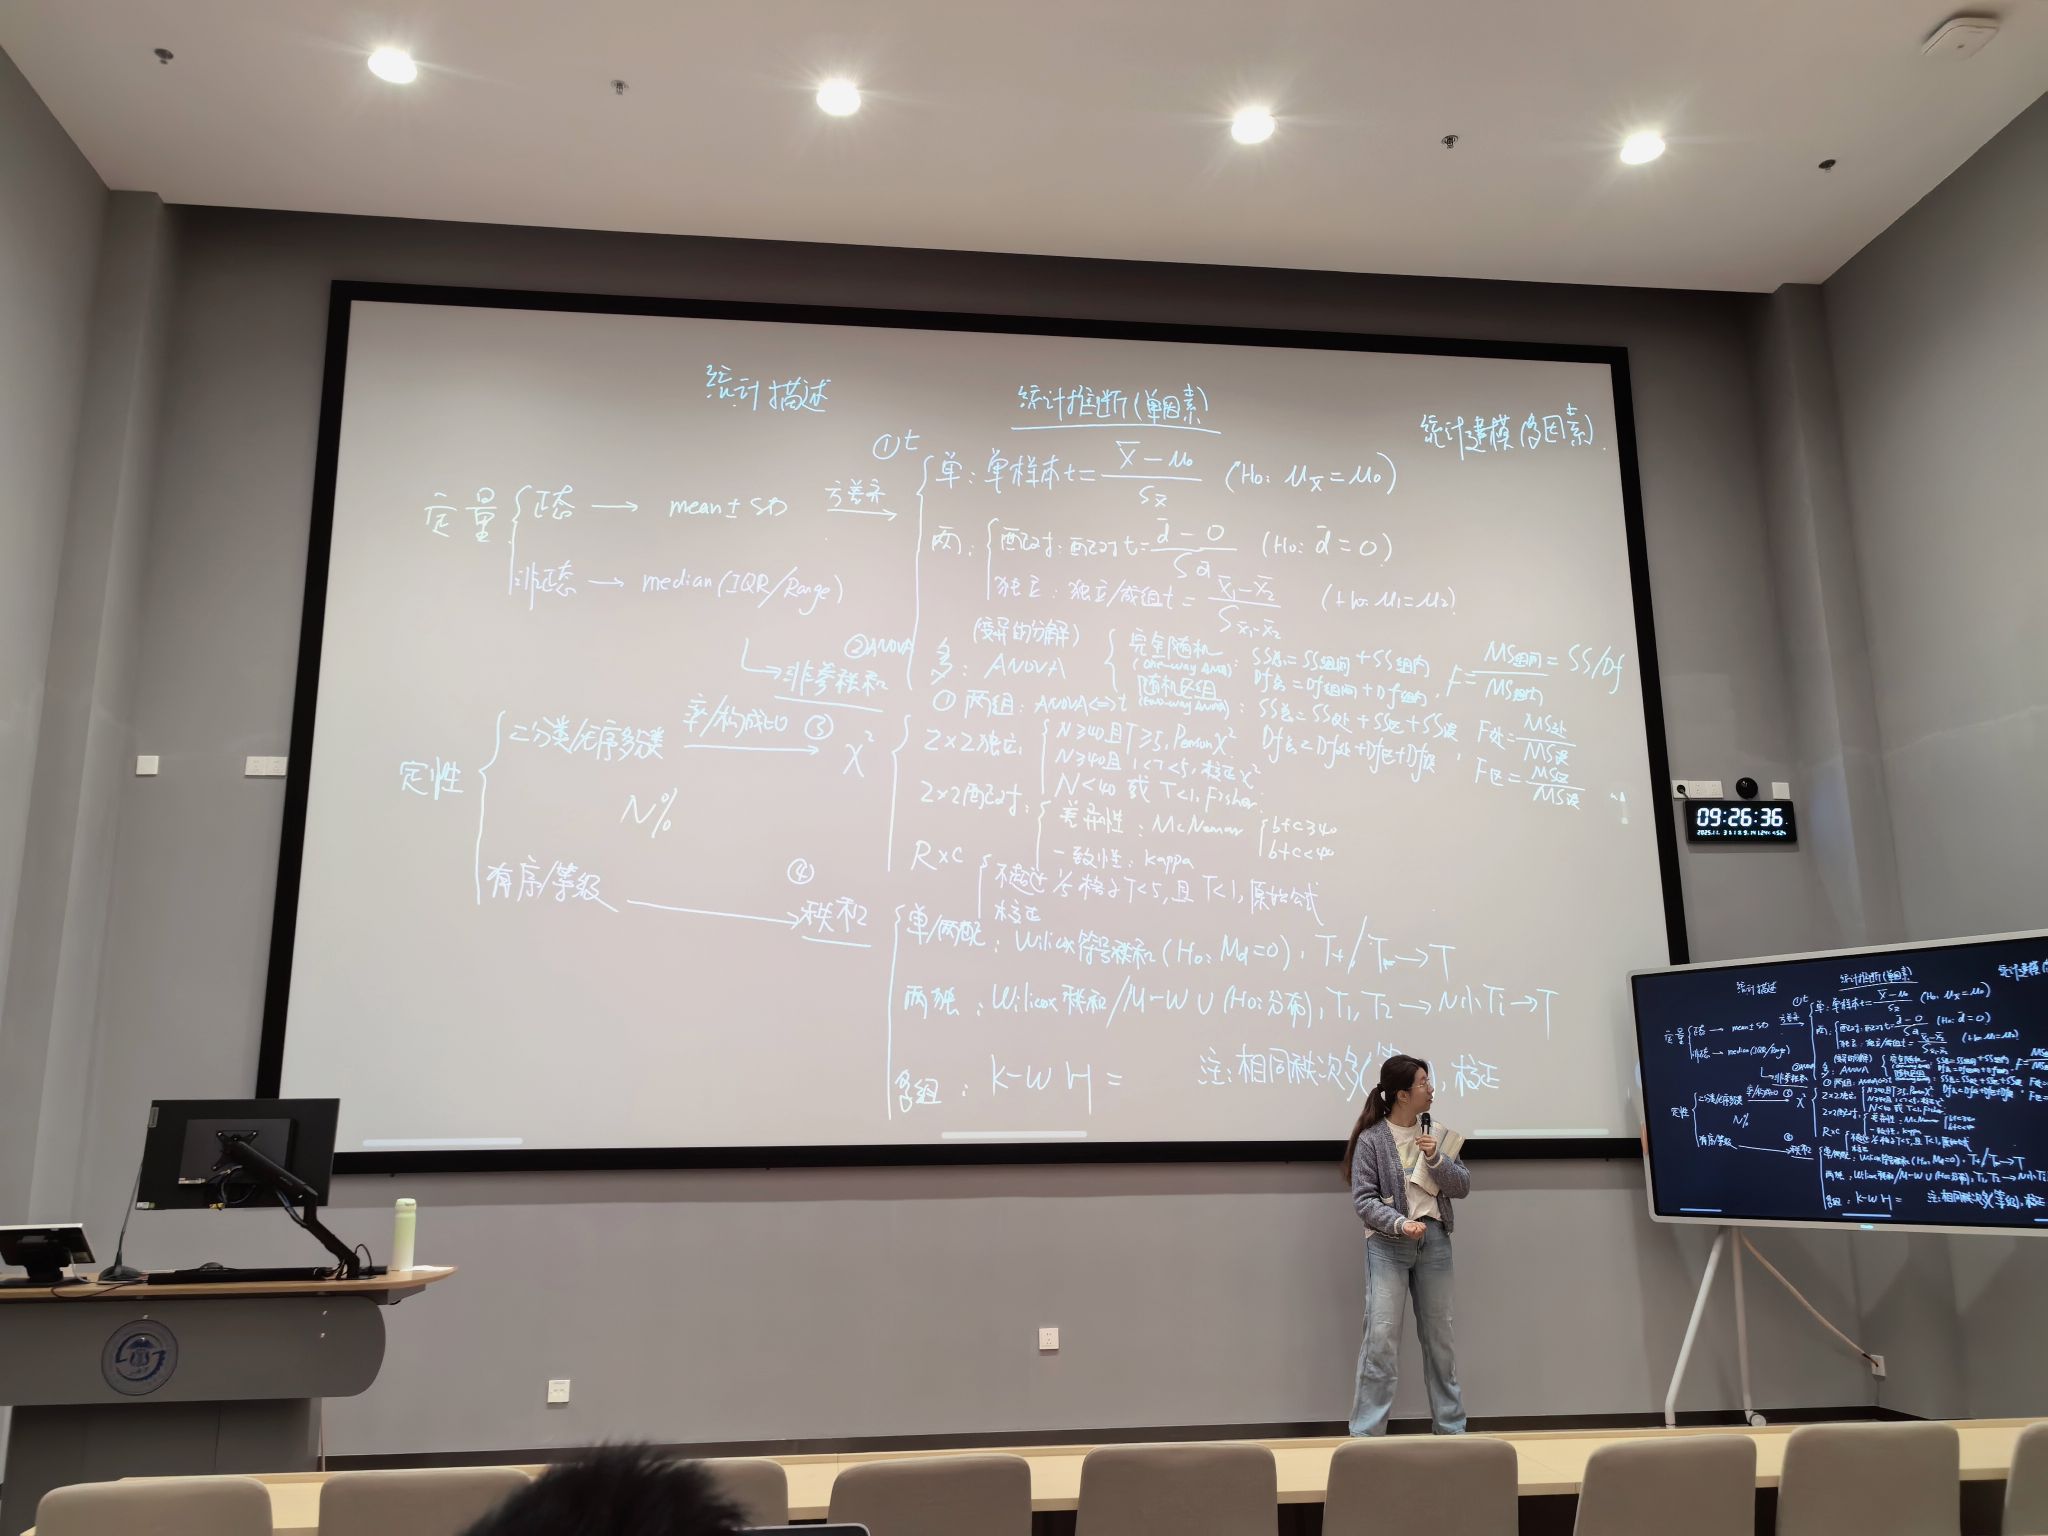 统计描述
统计推断(单因素)
统计建模(多因素)
① t
定量
正态 → mean ± SD
方差齐
非正态 → median (IQR/Range)
非参 秩和
单: 单样本t = X̄ - μ₀ / S_X̄ (H₀: μ_X̄ = μ₀)
两:
配对: 配对t = d̄ - 0 / S_d̄ (H₀: d̄ = 0)
独立: 独立/成组t = X̄₁ - X̄₂ / S_X̄₁-X̄₂ (H₀: μ₁ = μ₂)
② ANOVA
(变异的分解)
多: ANOVA
完全随机 (one-way ANOVA): SS总 = SS组间 + SS组内
Df总 = Df组间 + Df组内, F = MS组间 / MS组内 = SS/Df
随机区组 (two-way ANOVA): SS总 = SS处 + SS区 + SS误 F处 = MS处 / MS误
Df总 = Df处 + Df区 + Df误, F区 = MS区 / MS误
① 两组: ANOVA <=> t
定性
二分类/无序多分类
率/构成比 ③
χ²
N%
2×2独立:
N≥40且T≥5, Pearson χ²
N≥40且1<T<5, 校正χ²
N<40 或 T<1, Fisher.
2×2配对:
差异性: McNemar
b+c≥40
b+c<40
一致性: kappa
R×C
不超过1/5格子T<5, 且T<1, 原始公式
校正
有序/等级
④
秩和
单/两配: Wilicox 符号秩和 (H₀: Md=0), T+/T- → T
两独: Wilicox 秩和/M-W U (H₀:分布), T₁, T₂ → N小 Ti → T
多组: K-W H =
注: 相同秩次多(等级), 校正
09:26:36